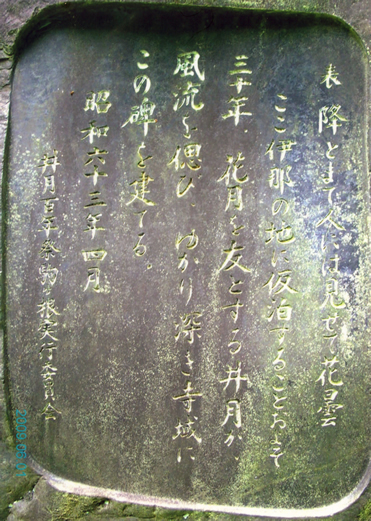 表 降とまで人には見せて花曇
ここ伊那の地に仮泊することおよそ
三十年、花月を友とする井月が
風流を偲び、ゆかり深き寺域に
この碑を建てる。
昭和六十三年四月
井月百年祭駒ヶ根実行委員会
2009.05.01